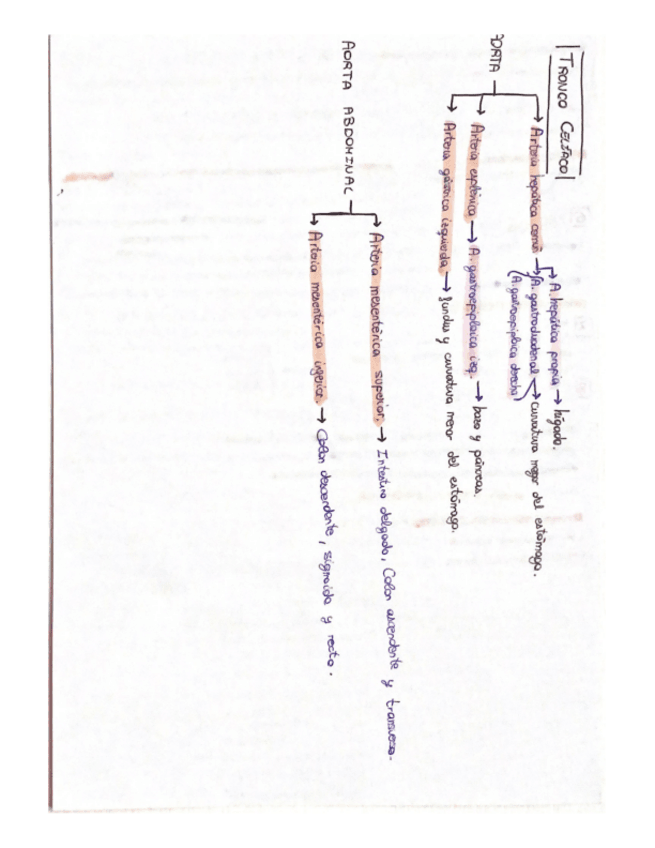 TRONCO CELÍACO
ORTA
Arteria hepática común → A. hepática propia → hígado.
A. gastroduodenal → curvatura mayor del estómago.
(A. gastroepiploica derecha)
Arteria esplénica → A. gastroepiploica izq. → bazo y páncreas.
Arteria gástrica izquierda → fundus y curvatura menor del estómago.
AORTA ABDOMINAL
Arteria mesentérica superior. → Intestino delgado, Colon ascendente y transverso.
Arteria mesentérica inferior. → Colon descendente, sigmoide y recto.